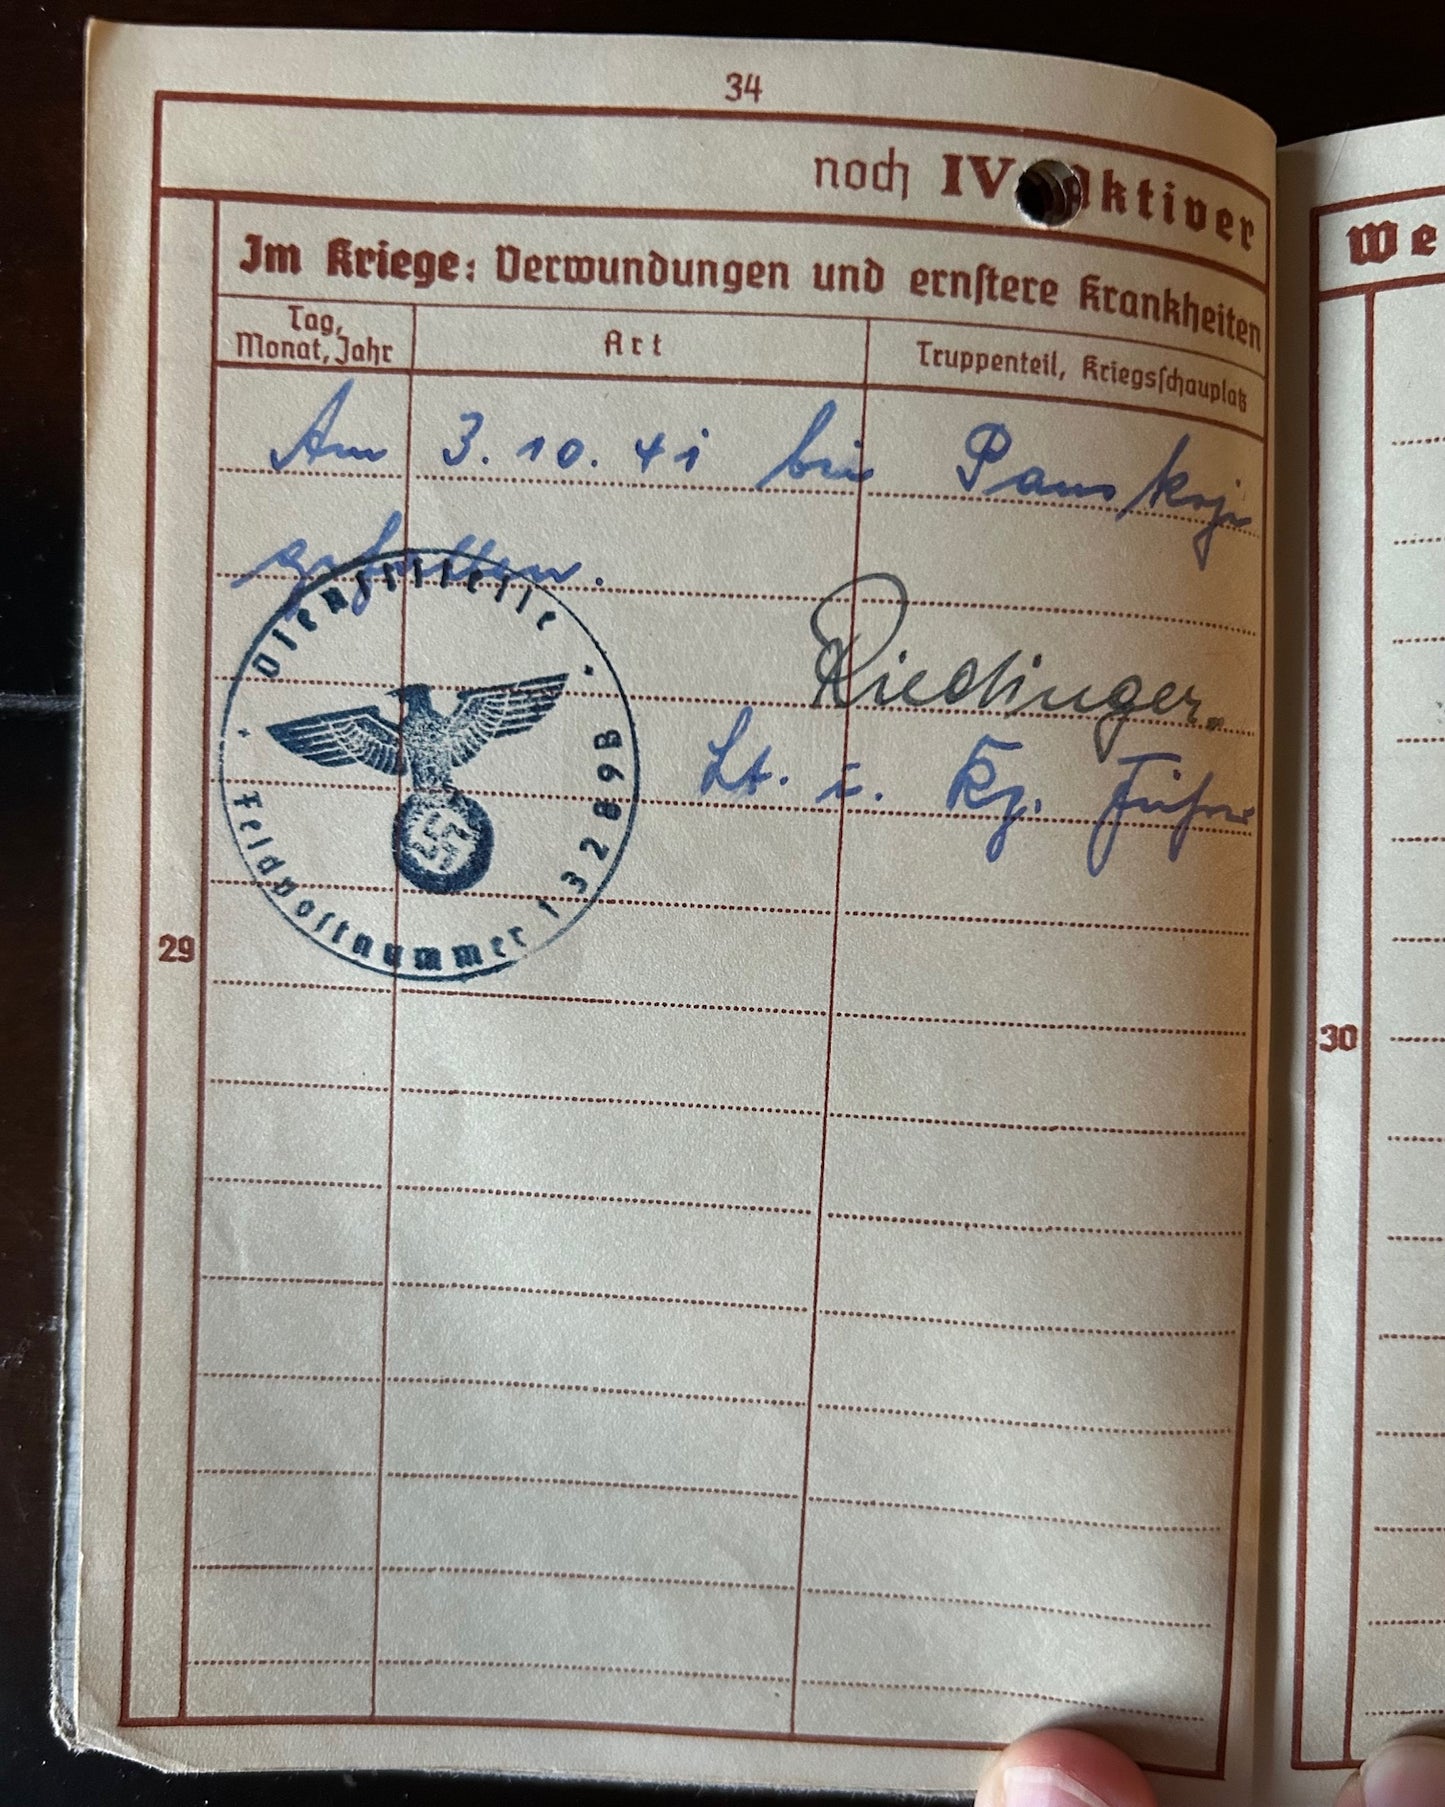 34
noch IV. Aktiver
Im Kriege: Verwundungen und ernstere Krankheiten
Tag, Monat, Jahr
Art
Truppenteil, Kriegsschauplatz
Am 3. 10. 41 bei
gefallen.
Riedinger.
Lt. u. Kp. Führer
Dienststelle
Feldpostnummer 13289B
29
We
30